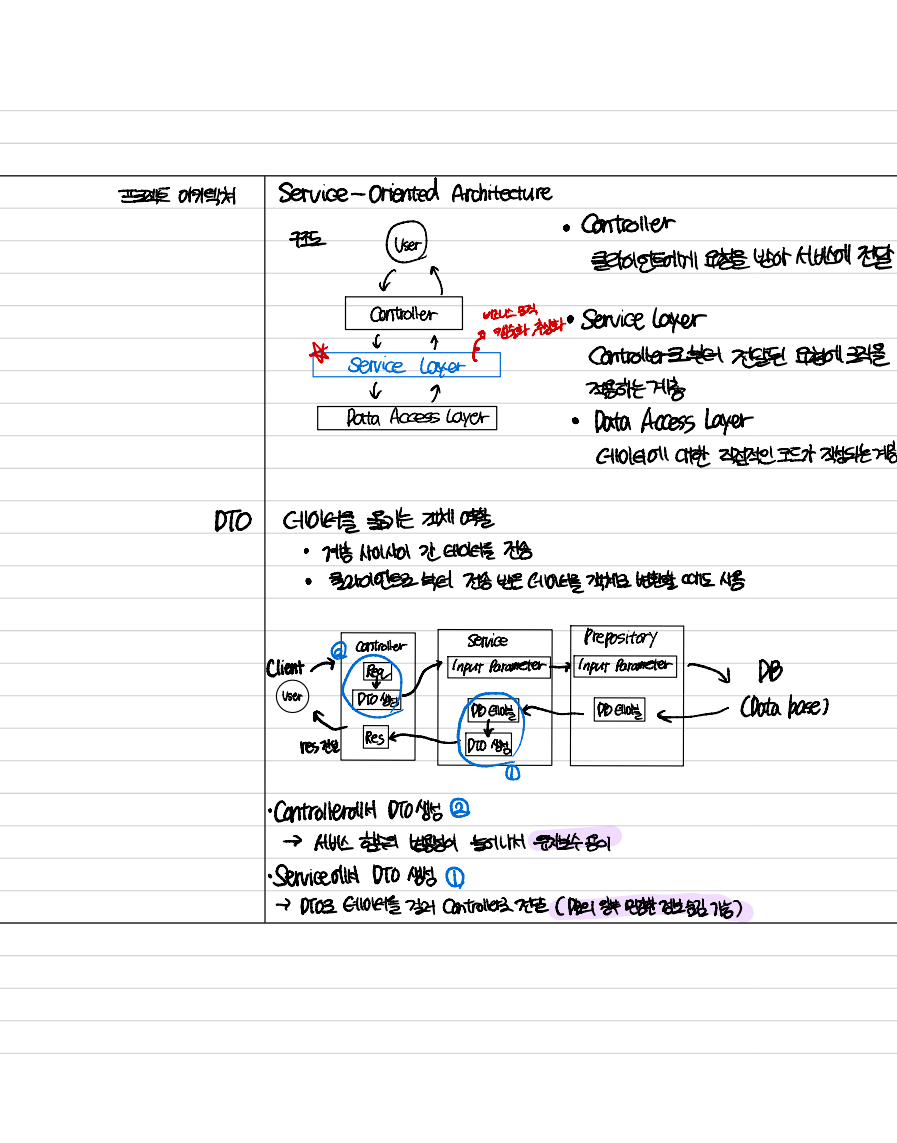 프로젝트 아키텍처
Service-Oriented Architecture
구조도
User
Controller
Service Layer
Data Access Layer
비즈니스 로직
캡슐화 추상화
• Controller
클라이언트에게 요청을 받아 서비스에 전달
• Service Layer
Controller로부터 전달된 요청에 로직을
적용하는 계층
• Data Access Layer
데이터에 대한 직접적인 코드가 작성되는 계층
DTO
데이터를 옮기는 객체 역할
• 계층 사이사이 간 데이터를 전송
• 클라이언트로 부터 전송 받은 데이터를 객체로 변환할 때도 사용
Client
User
res 전달
②
Controller
Req
DTO 생성
Res
Service
Input Parameter
DB 데이터
DTO 생성
①
Prepository
Input Parameter
DB 데이터
DB
(Data base)
•Controller에서 DTO 생성 ②
→ 서비스 함수의 범용성이 늘어나서 유지보수 용이
•Service에서 DTO 생성 ①
→ DTO로 데이터를 걸러 Controller로 전달 (DB의 일부 민감한 정보 숨김 가능)